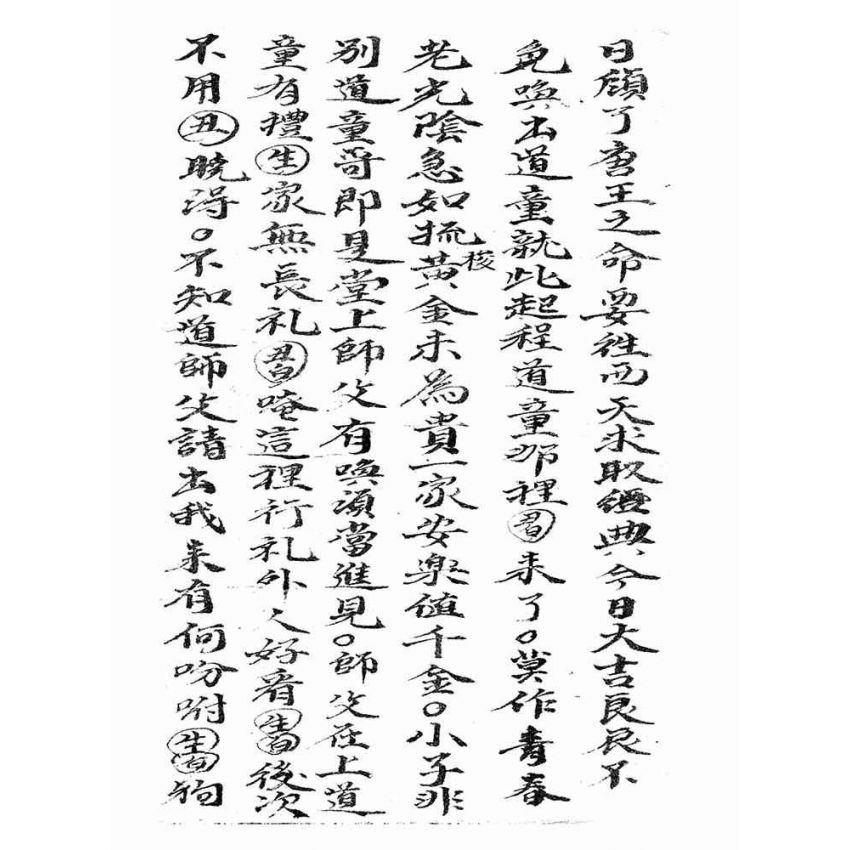 日領了唐王之命要往西天求取經典今日大吉良辰不
免喚出道童就此起程道童那裡丑白来了。莫作青春
老光陰急如梳梭黃金未為貴一家安樂值千金。小子非
別道童哥即是堂上師父有喚須當進見。師父在上道
童有禮生家無長礼丑白唵這裡行礼外人好看生白後次
不用丑曉得。不知道師父請出我来有何吩咐生白狥